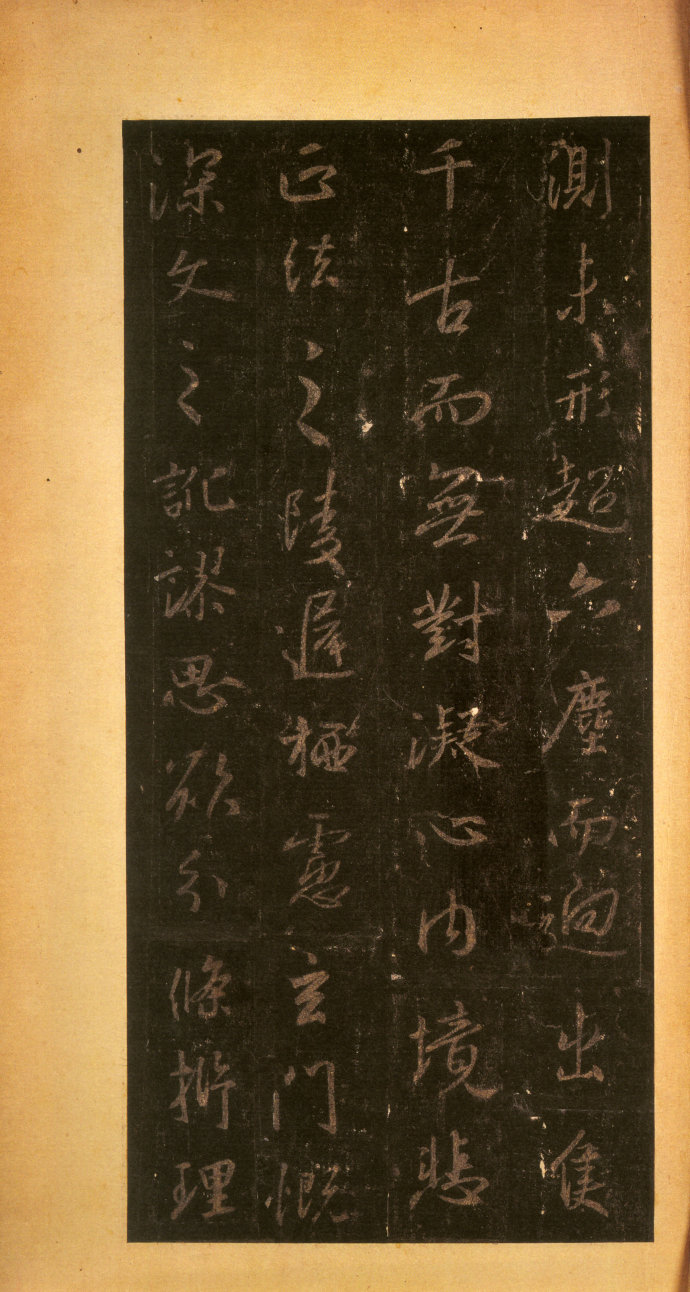 測未形超六塵而逈出隻
千古而無對凝心內境悲
正法之陵遲栖慮玄門慨
深文之訛謬思欲分條析理